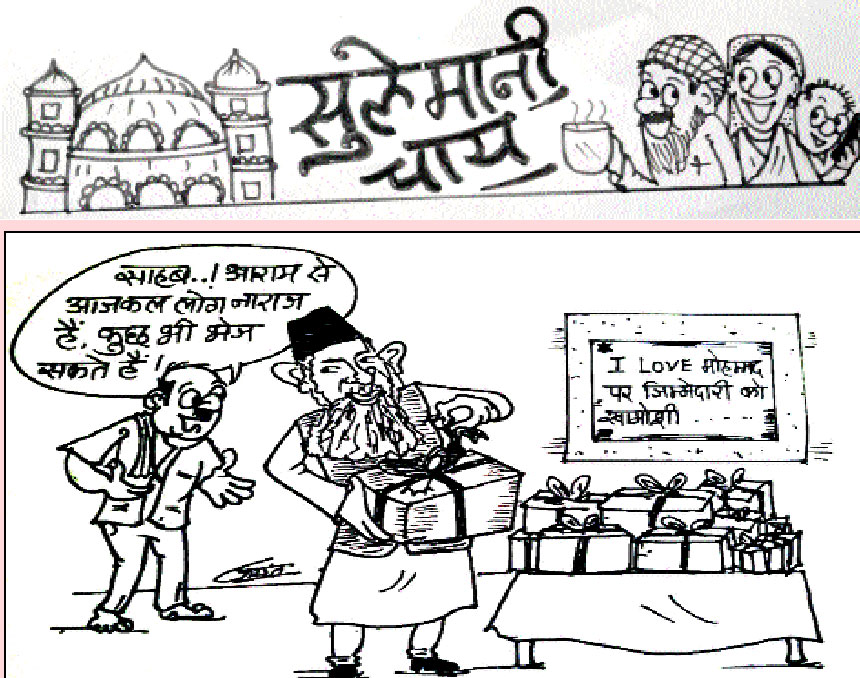 सुलेमानी
चाय
साहब..! आराम से
आजकल लोग नाराज
हैं, कुछ भी भेज
सकते हैं!
I LOVE मोहम्मद
पर जिम्मेदारी को
खामोशी